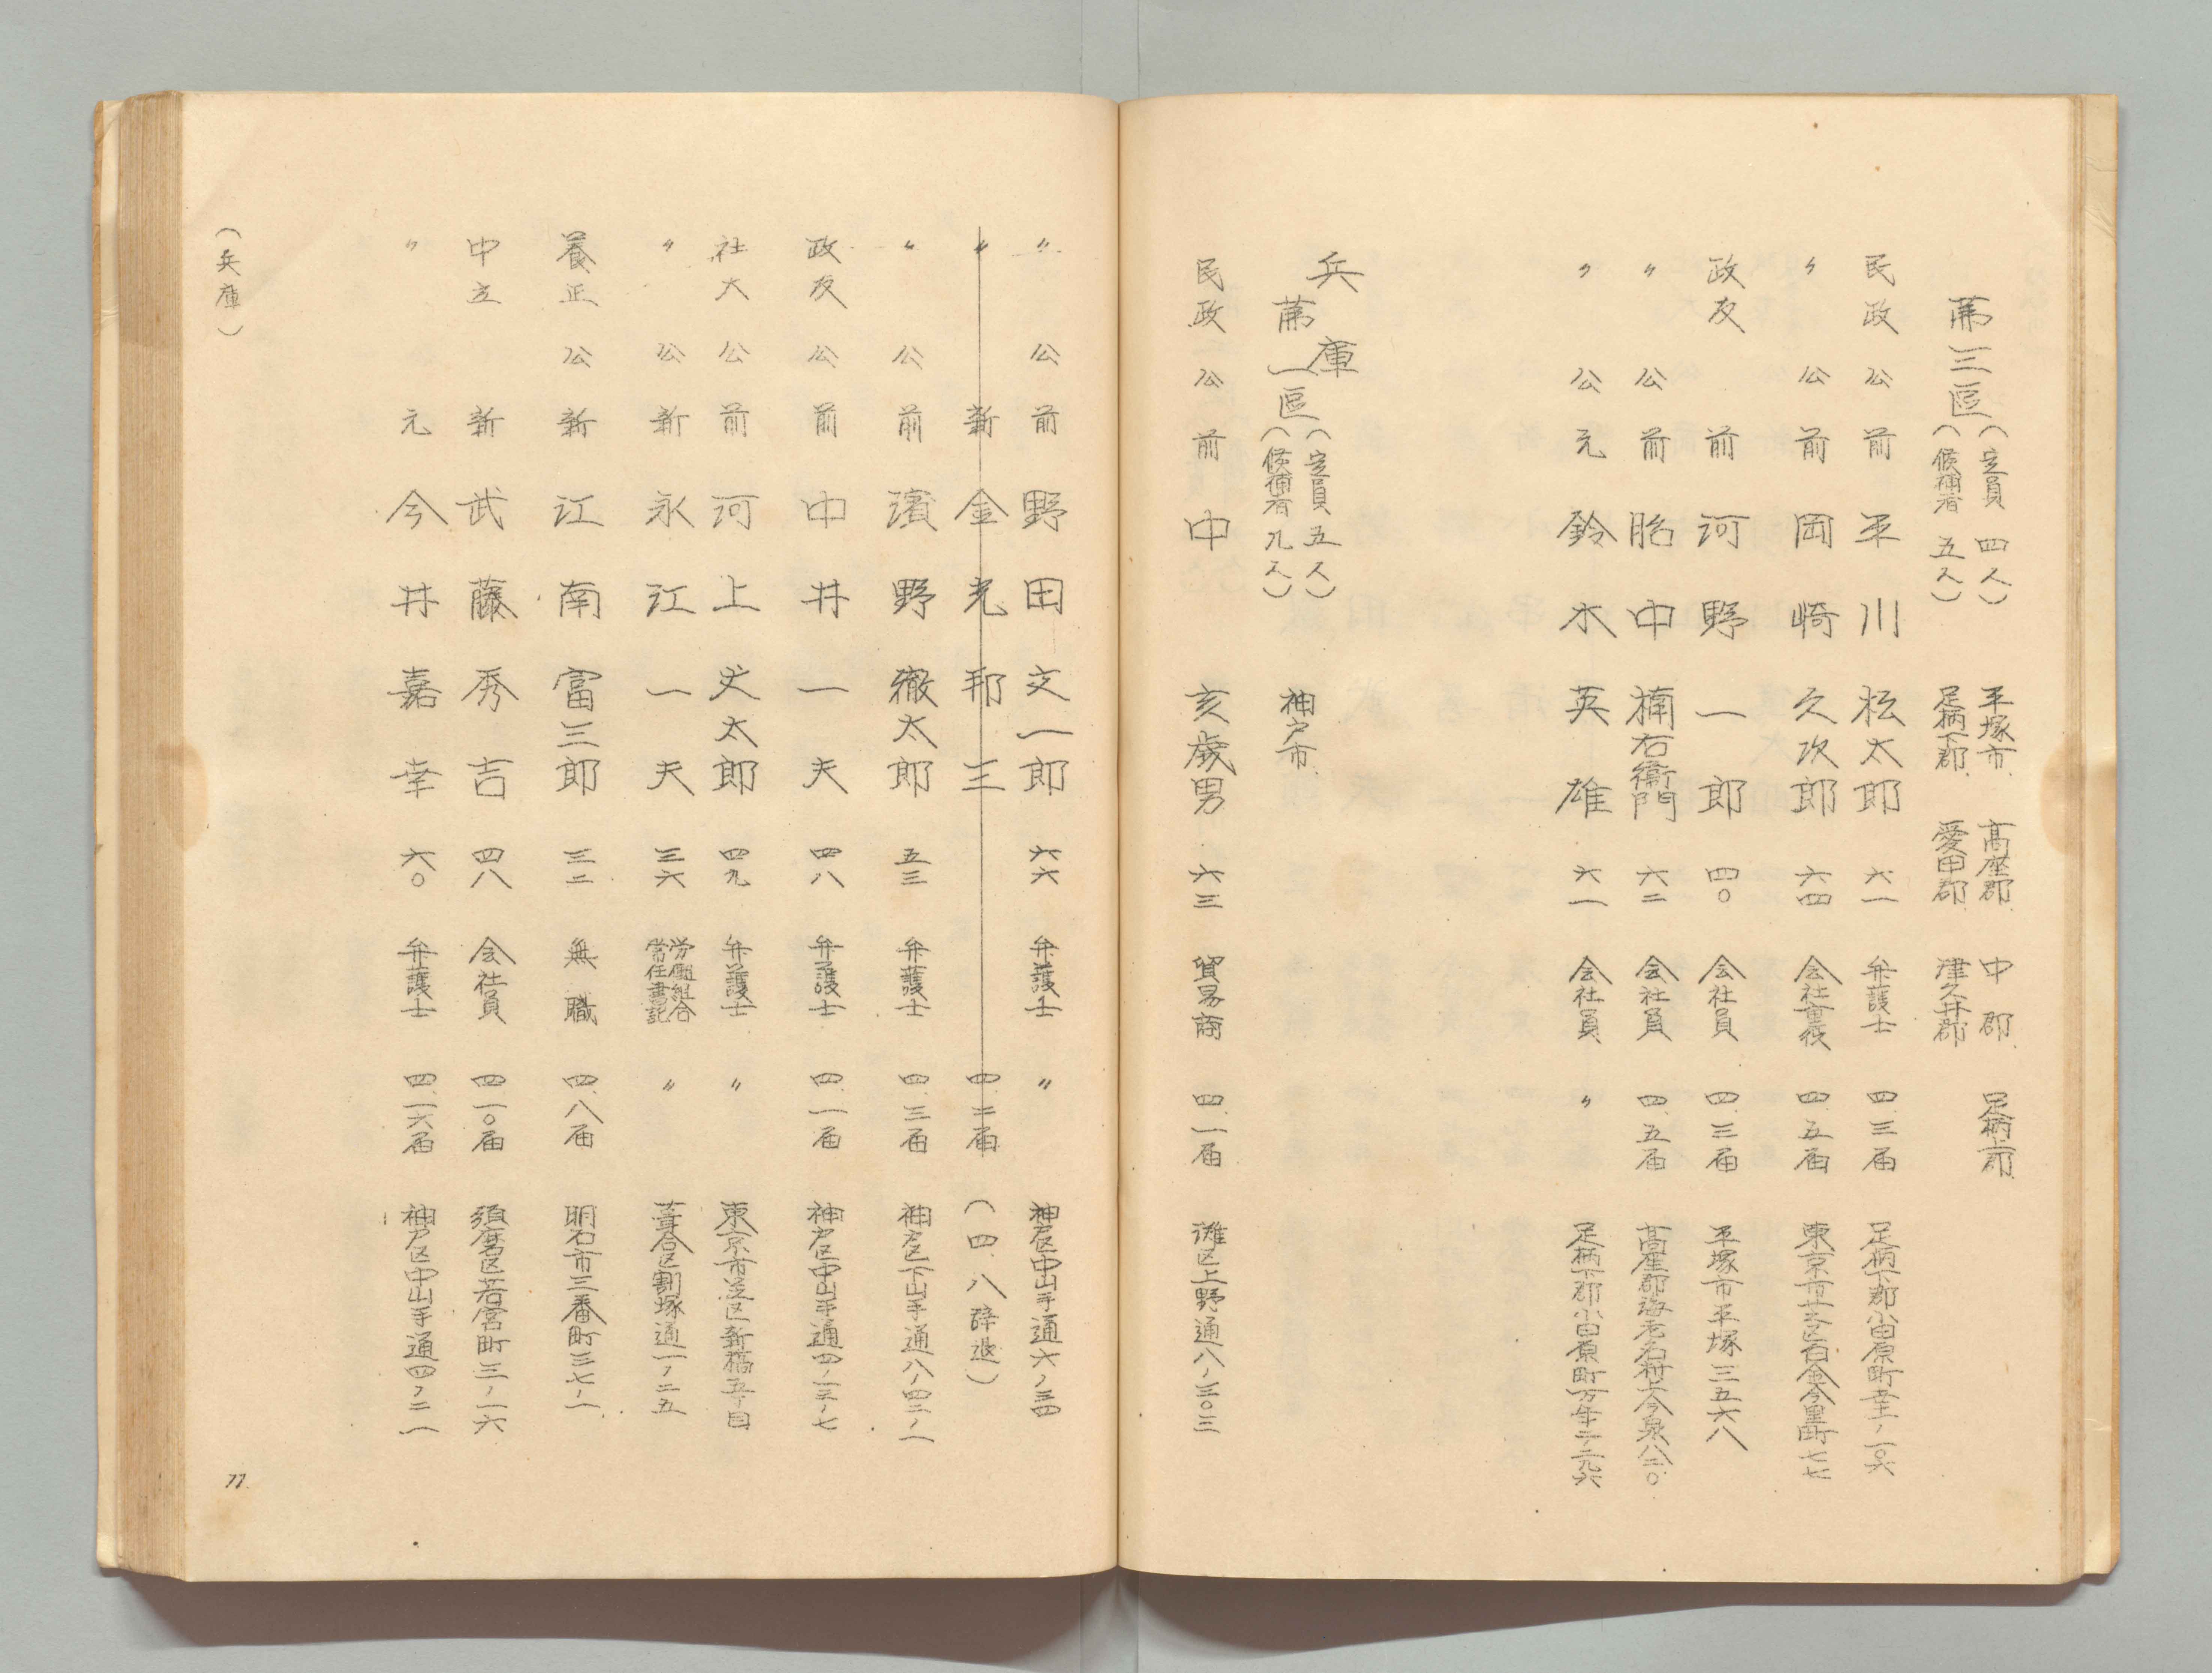 第三區(定員 四人)(候補者 五人)
平塚市 高座郡 中郡 足柄上郡
足柄下郡 愛甲郡 津久井郡
民政 公 前 平川松太郎 六一 弁護士 四.三届 足柄下郡小田原町
〃 公 前 岡崎久次郎 六四 会社重役 四.五届 東京市芝区白金今里町七七
政友 前 河野一郎 四〇 会社員 四.三届 平塚市平塚三五六八
〃 公 前 胎中楠右衛門 六二 会社員 四.五届 高座郡海老名村上今泉八二〇
〃 公 元 鈴木英雄 六一 会社員 〃 足柄下郡小田原町万年二ノ二九六
兵庫
第一區(定員 五人)(候補者 九人) 神戸市
民政 公 前 中亥歳男 六三 貿易商 四.一届 灘区上野通八ノ三〇三
〃 公 前 野田文一郎 六六 弁護士 〃 神戸区中山手通六ノ三四
〃 新 金光邦三 四.二届 (四.八辞退)
〃 公 前 濱野徹太郎 五三 弁護士 四.三届 神戸区下山手通八ノ四二ノ一
政友 公 前 中井一夫 四八 弁護士 四.一届 神戸区中山手通四ノ一三ノ七
社大 公 前 河上丈太郎 四九 弁護士 〃 東京市芝区新橋五丁目
〃 公 新 永江一夫 三六 労働組合常任書記 〃 葺合区割塚通一ノ二五
養正 公 新 江南富三郎 三二 無職 四.八届 明石市三番町三七ノ一
中立 新 武藤秀吉 四八 会社員 四.一〇届 須磨区若宮町三ノ一六
〃 元 今井嘉幸 六〇 弁護士 四.一六届 神戸区中山手通四ノ二一
(兵庫)
77